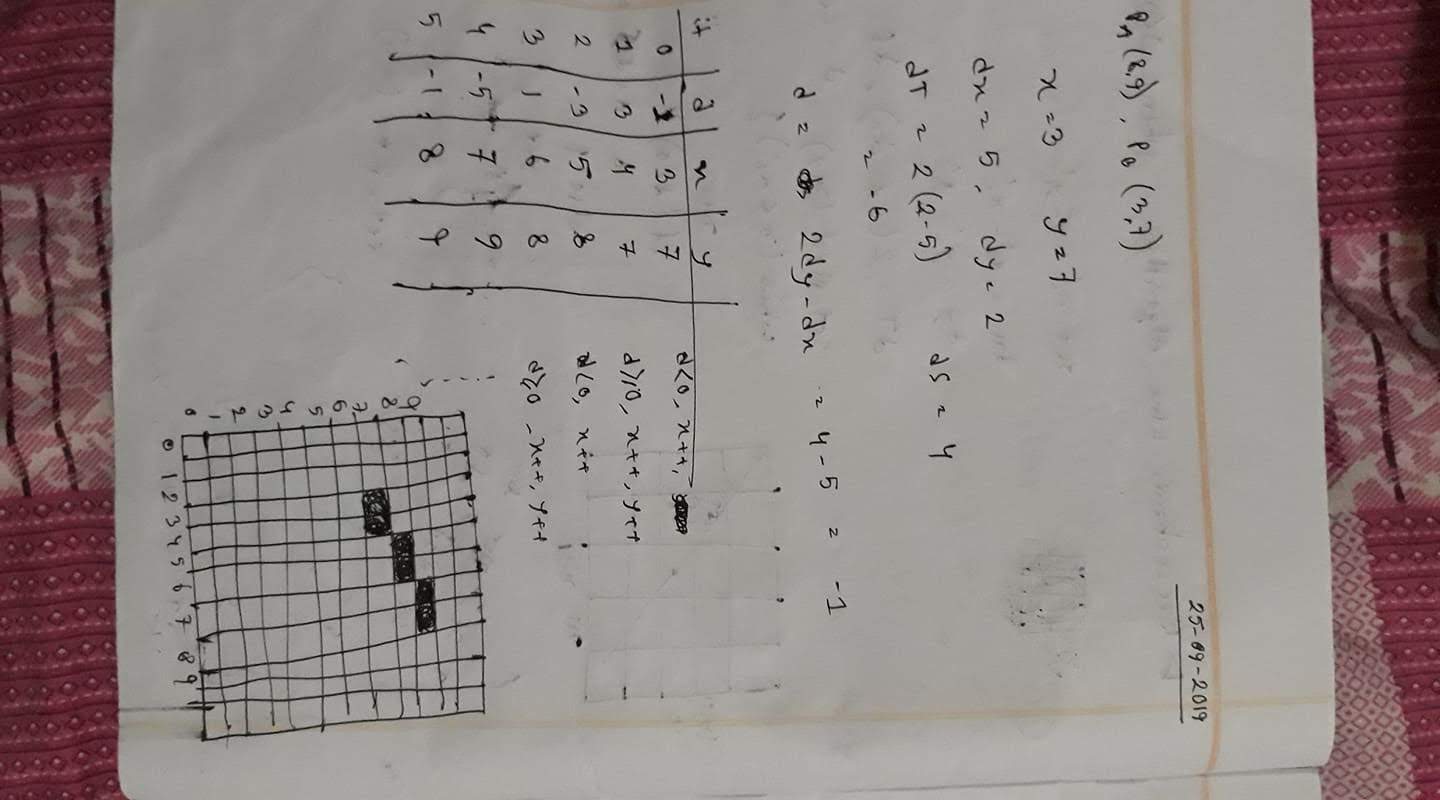 25-09-2019
P_A (8,9), P_B (3,7)
x = 3 y = 7
dx = 5, dy = 2
dT = 2(2-5) ds = 4
= -6
d = 2dy - dx = 4 - 5 = -1
it d x y
0 -1 3 7 d<0, x++,
1 3 4 7 d≥0, x++, y++
2 -3 5 8 d<0, x++
3 1 6 8 d≥0 - x++, y++
4 -5 7 9
5 -1 8 9
9
8
7
6
5
4
3
2
1
0
0 1 2 3 4 5 6 7 8 9